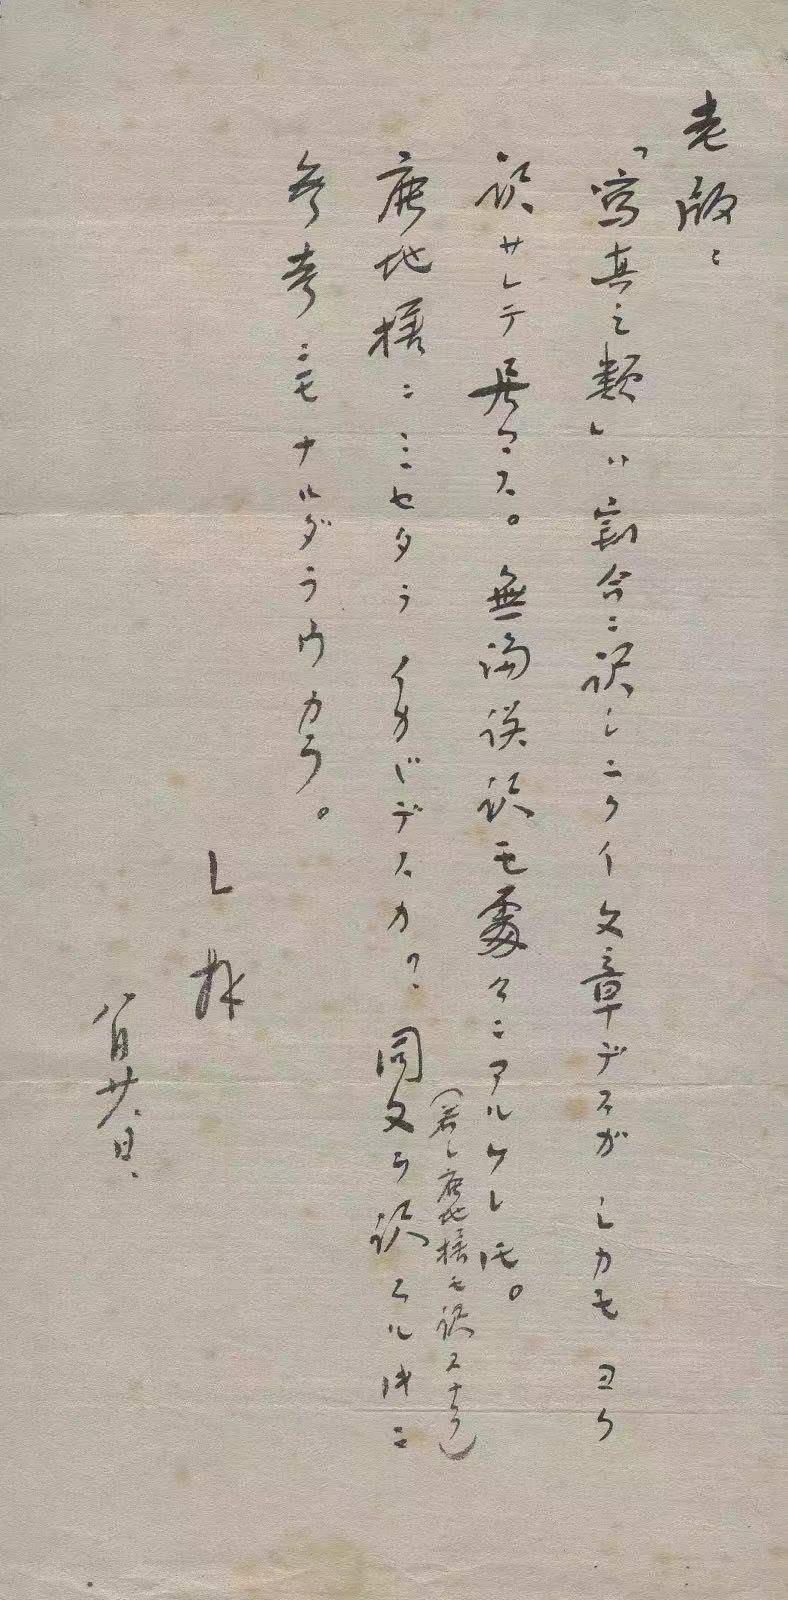 老版:
「寫真之類」ハ割合ニ訳シニクイ文章デスガシカモヨク
訳サレテ居マス。無論誤訳モ處々ニアルケレドモ。
(若シ鹿地様モ訳スナラ)
鹿地様ニミセタライカヾデスカ?同文ヲ訳スル時ニ
参考ニモナルダラウカラ。
L 拜
八月廿八日、